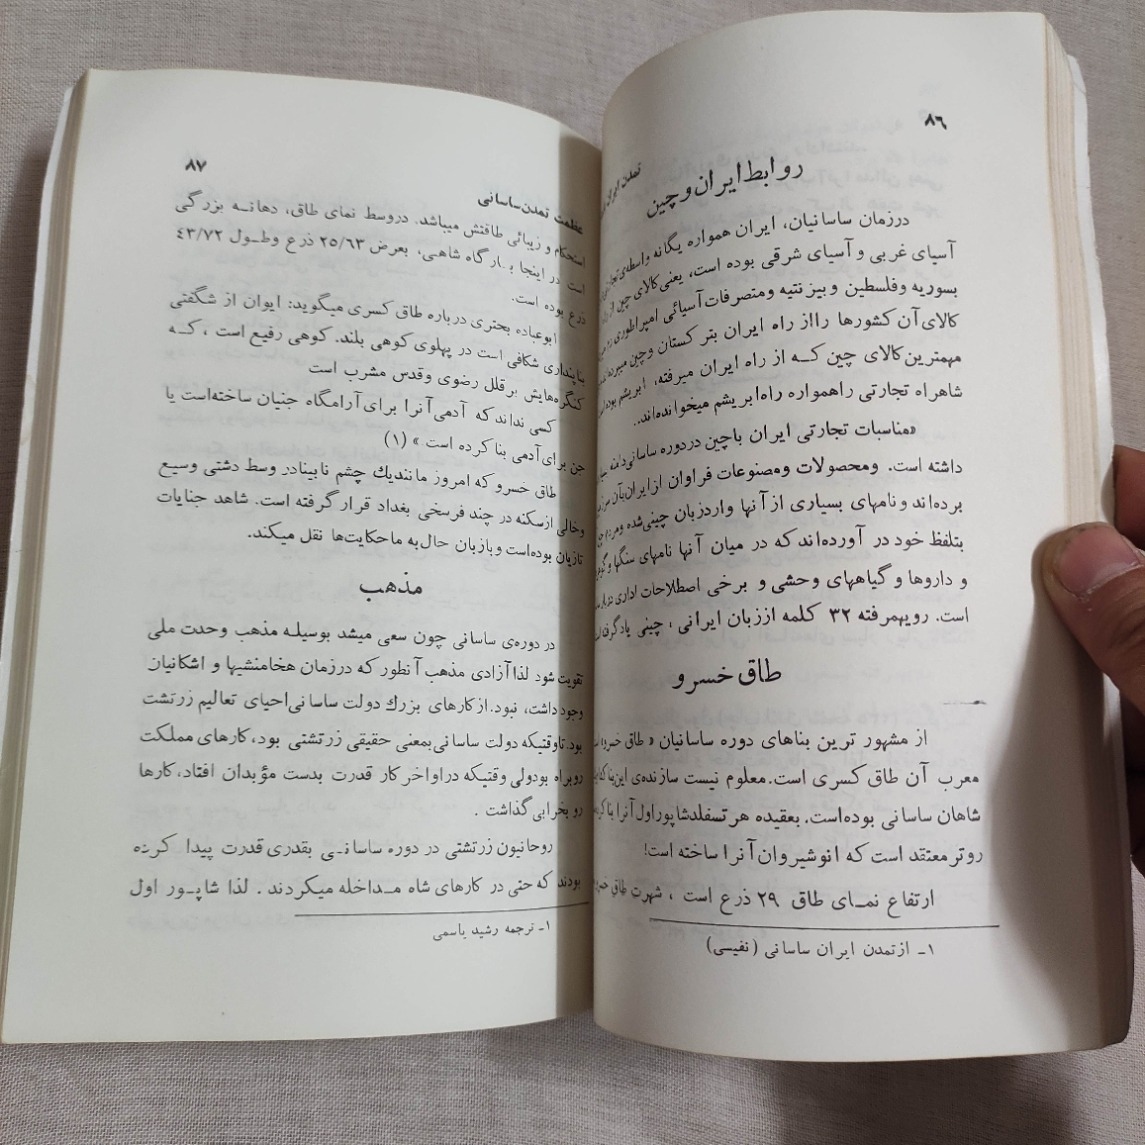 ۸۶
تمدن ایران
روابط ایران و چین
درزمان ساسانیان، ایران همواره یگانه واسطه‌ی
آسیای غربی و آسیای شرقی بوده است، یعنی کالای چین از
بسوریه وفلسطین و بیزنتیه ومتصرفات آسیائی امپراطوری
کالای آن کشورها رااز راه ایران بتر کستان وچین
مهمترین کالای چین کـه از راه ایران میرفته، ابریشم بوده
شاهراه تجارتی راهمواره راه ابریشم میخوانده‌اند..
«مناسبات تجارتی ایران باچین دردوره ساسانی دامنه
داشته است. ومحصولات ومصنوعات فراوان ازایران بآن
برده‌اند و نامهای بسیاری از آنها واردزبان چینی شده
بتلفظ خود در آورده‌اند که در میان آنها نامهای سنگها
و داروها و گیاههای وحشی و برخی اصطلاحات اداری
است. رویهمرفته ۳۲ کلمه اززبان ایرانی ، چینی یاد گرفته
طاق خسرو
از مشهور ترین بناهای دوره ساسانیان « طاق خسرو»
معرب آن طاق کسری است.معلوم نیست سازنده‌ی این بنا
شاهان ساسانی بوده‌است. بعقیده هر تسفلدشاپوراول آنرا بنا
روترمعتقد است که انوشیروان آنرا ساخته است!
ارتفاع نمـای طاق ۲۹ ذرع است ، شهرت طاق
۱ـ ازتمدن ایران ساسانی (نفیسی)
۸۷
عظمت تمدن ساسانی
استحکام و زیبائی طاقتش میباشد. دروسط نمای طاق، دهانـه بزرگی
است در اینجا بـار گاه شاهـی، بعرض ۲۵/۶۳ ذرع وطـول ۴۳/۷۲
ذرع بوده است.
ابوعباده بحتری درباره طاق کسری میگوید: ایوان از شگفتی
بناپنداری شکافی است در پهلوی کوهی بلند. کوهی رفیع است ، کـه
کنگره‌هایش برقلل رضوی وقدس مشرب است
کسی نداند که آدمی آنرا برای آرامگاه جنیان ساخته‌است یا
جن برای آدمی بنا کرده است » (۱)
طاق خسرو که امروز مانندیك چشم نابینادر وسط دشتی وسیع
وخالی ازسکنه در چند فرسخی بغداد قرار گرفته است. شاهد جنایات
تازیان بوده‌است وبازبان حال به ماحکایت‌ها نقل میکند.
مذهب
در دوره‌ی ساسانی چون سعی میشد بوسیلـه مذهب وحدت ملی
تقویت شود لذا آزادی مذهب آنطور که درزمان هخامنشیها و اشکانیان
وجود داشت، نبود. از کارهای بزرك دولت ساسانی احیای تعالیم زرتشت
بود. تاوقتیکه دولت ساسانی بمعنی حقیقی زرتشتی بود، کارهای مملکت
روبراه بودولی وقتیکه دراواخر کار قدرت بدست مؤبدان افتاد، کارها
رو بخرابی گذاشت .
روحانیون زرتشتی در دوره ساسانـی بقدری قدرت پیدا کرده
بودند که حتی در کارهای شاه مـداخله میکردند . لذا شاپـور اول
۱ـ ترجمه رشید یاسمی